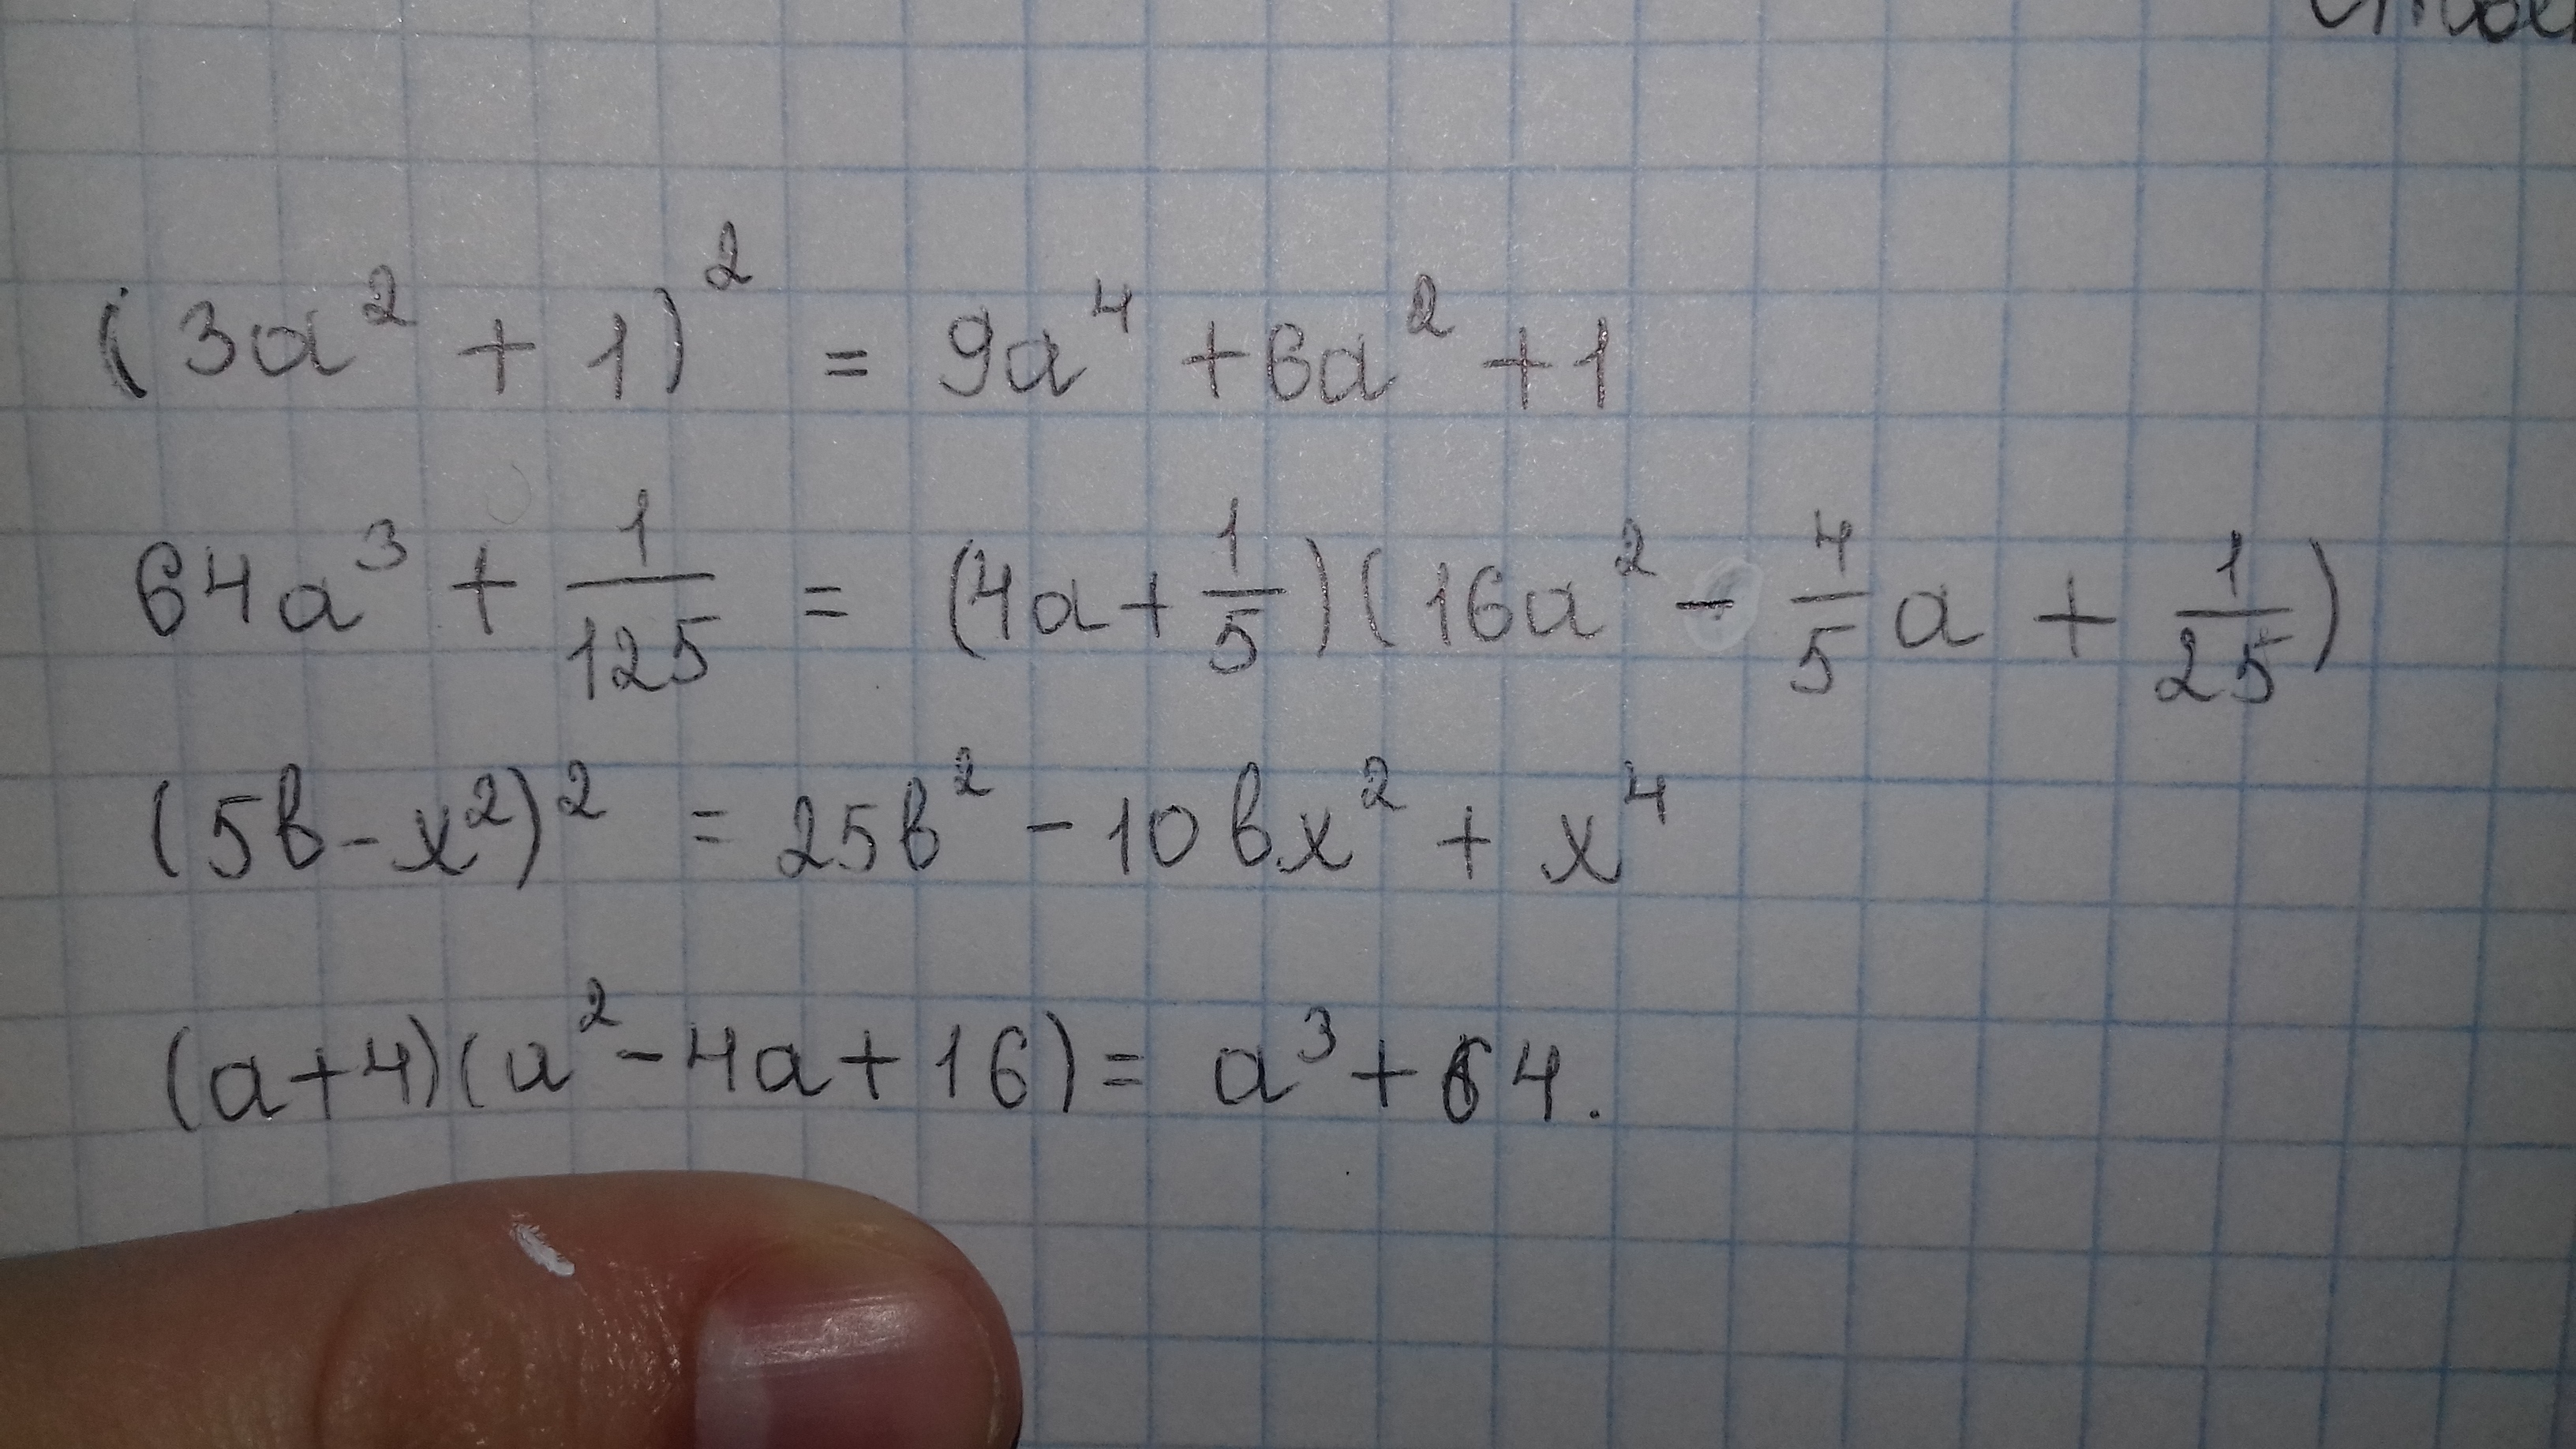 (3a² + 1)² = 9a⁴ + 6a² + 1
64a³ + 1/125 = (4a + 1/5)(16a² - 4/5 a + 1/25)
(5b - x²)² = 25b² - 10bx² + x⁴
(a+4)(a² - 4a + 16) = a³ + 64.